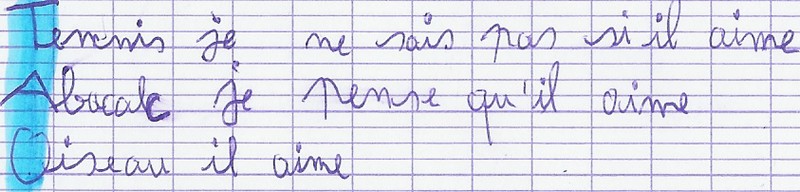 Tennis je ne sais pas si il aime
Abocate je pense qu'il aime
Oiseau il aime